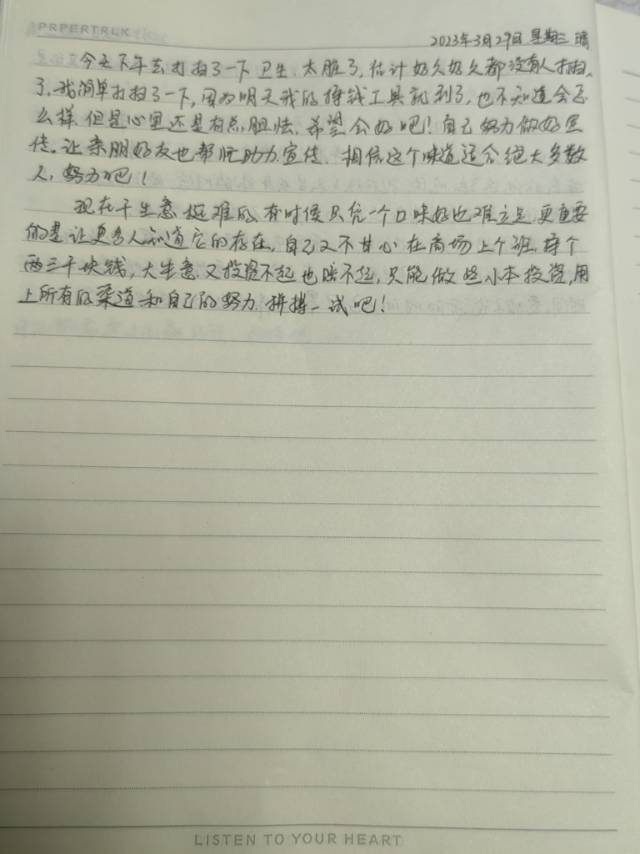 PRPERTRLK
2023年3月29日 星期三 晴
今天下午去打扫了一下卫生,太脏了,估计好久好久都没有人打扫
了,我简单打扫了一下,因为明天我的挣钱工具就到了,也不知道会怎
么样,但是心里还是有点胆怯,希望会好吧!自己努力做好宣
传。让亲朋好友也帮忙助力宣传,相信这个味道适合绝大多数
人,努力吧!
现在干生意挺难的,有时候只凭一个口味好也难立足,更重要
的是让更多人知道它的存在,自己又不甘心在商场上个班,挣个
两三千块钱,大生意又投资不起也赔不起,只能做些小本投资,用
上所有的渠道和自己的努力拼搏一试吧!
LISTEN TO YOUR HEART